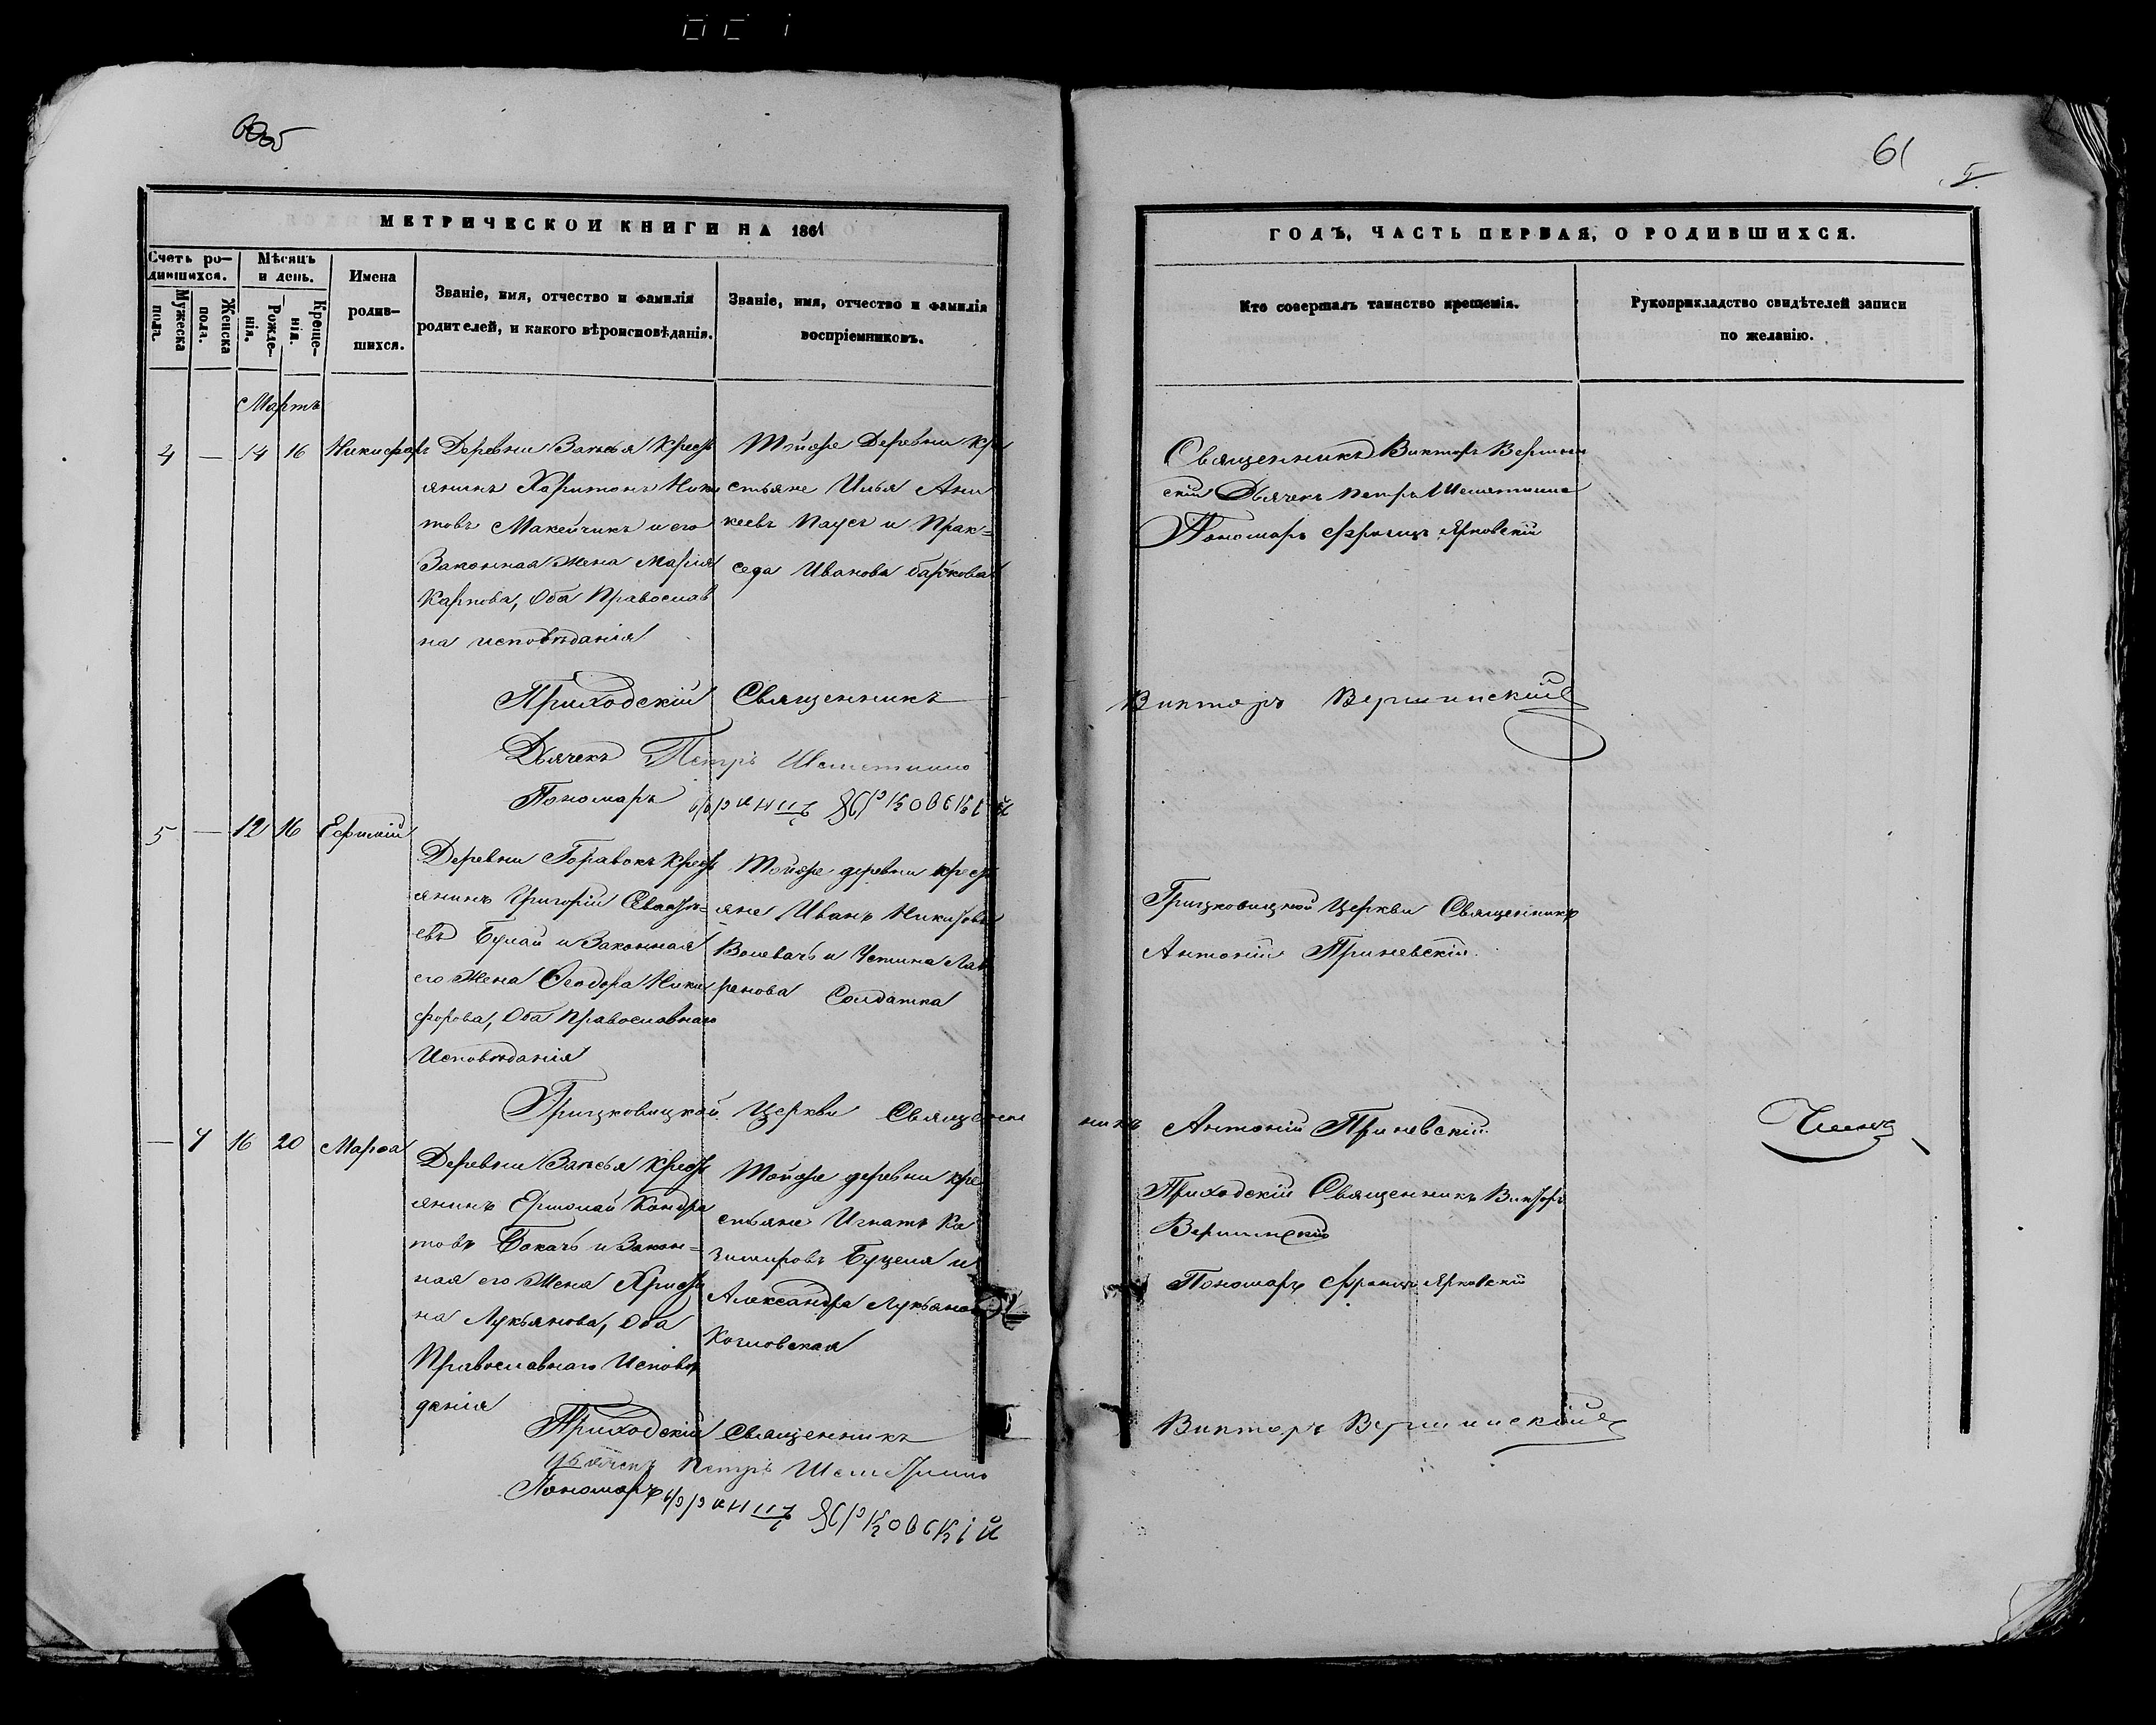 61
МЕТРИЧЕСКОЙ КНИГИ НА 1861
ГОДЪ, ЧАСТЬ ПЕРВАЯ, О РОДИВШИХСЯ.
Счетъ ро-
дившихся.
Мужеска
пола.
Женска
пола.
Мѣсяцъ
и день.
Рожде-
нія.
Креще-
нія.
Имена
родив-
шихся.
Званіе, имя, отчество и фамилія
родителей, и какого вѣроисповѣданія.
Званіе, имя, отчество и фамилія
воспріемниковъ.
Кто совершалъ таинство крещенія.
Рукоприкладство свидѣтелей записи
по желанію.
Мартъ
4 — 14 16 Никифоръ
Деревни Крест
янинъ Харитонъ Ники
товъ Макейчикъ и его
Законная Жена Марія
Карпова, Оба Православ
на исповѣданія
Тойже Деревни Кре
стьяне Илья Ани
кеевъ Паусъ и Прак=
седа Иванова
Священникъ Викторъ Вершин
скій Дьячекъ Петръ
Пономарь Францъ Ярковскій
Приходскій Священникъ Викторъ Вершинскій
Дьячекъ Петръ
Пономарь Францъ Ярковскій
5 — 12 16 Ефимій
Деревни Крест
янинъ Григорій Севастья=
евъ Булай и Законная
его Жена Ѳеодора Ники
форова, Оба Православнаго
Исповѣданія
Тойже деревни крест
яне Иванъ
и Устина Лав
ренова Солдатка
Грицковицкой Церкви Священникъ
Антоній
Грицковицкой Церкви Священникъ Антоній
— 4 16 20 Марѳа
Деревни Крест
янинъ Ермолай Кондра
товъ и Закон=
ная его Жена Христи
на Лукьянова, Оба
Православнаго Исповѣ
данія
Тойже деревни кре
стьяне Игнатъ Ка
зимировъ и
Александра Лукьянова
Козловская
Приходскій Священникъ Викторъ
Вершинскій
Пономарь Францъ Ярковскій
Приходскій Священникъ Викторъ Вершинскій
Дьячекъ Петръ
Пономарь Францъ Ярковскій